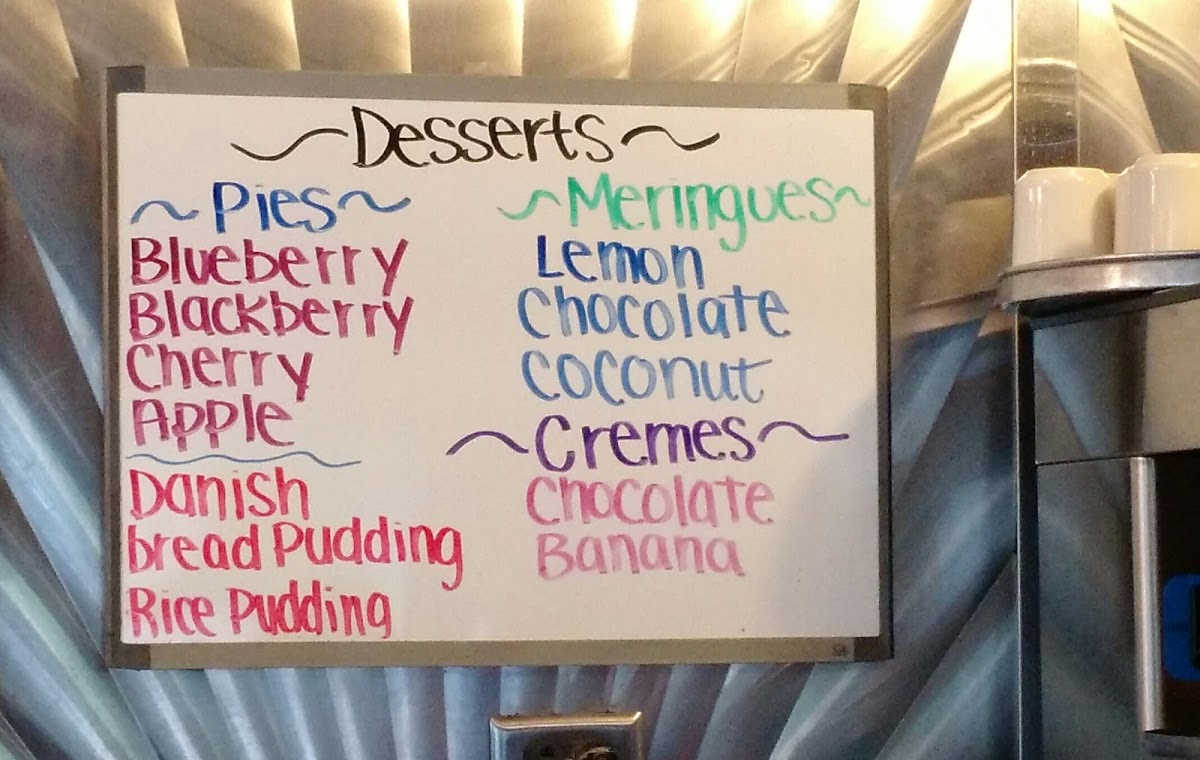 ~Desserts~
~Pies~
Blueberry
Blackberry
Cherry
Apple
Danish
bread Pudding
Rice Pudding
~Meringues~
Lemon
Chocolate
Coconut
~Cremes~
Chocolate
Banana